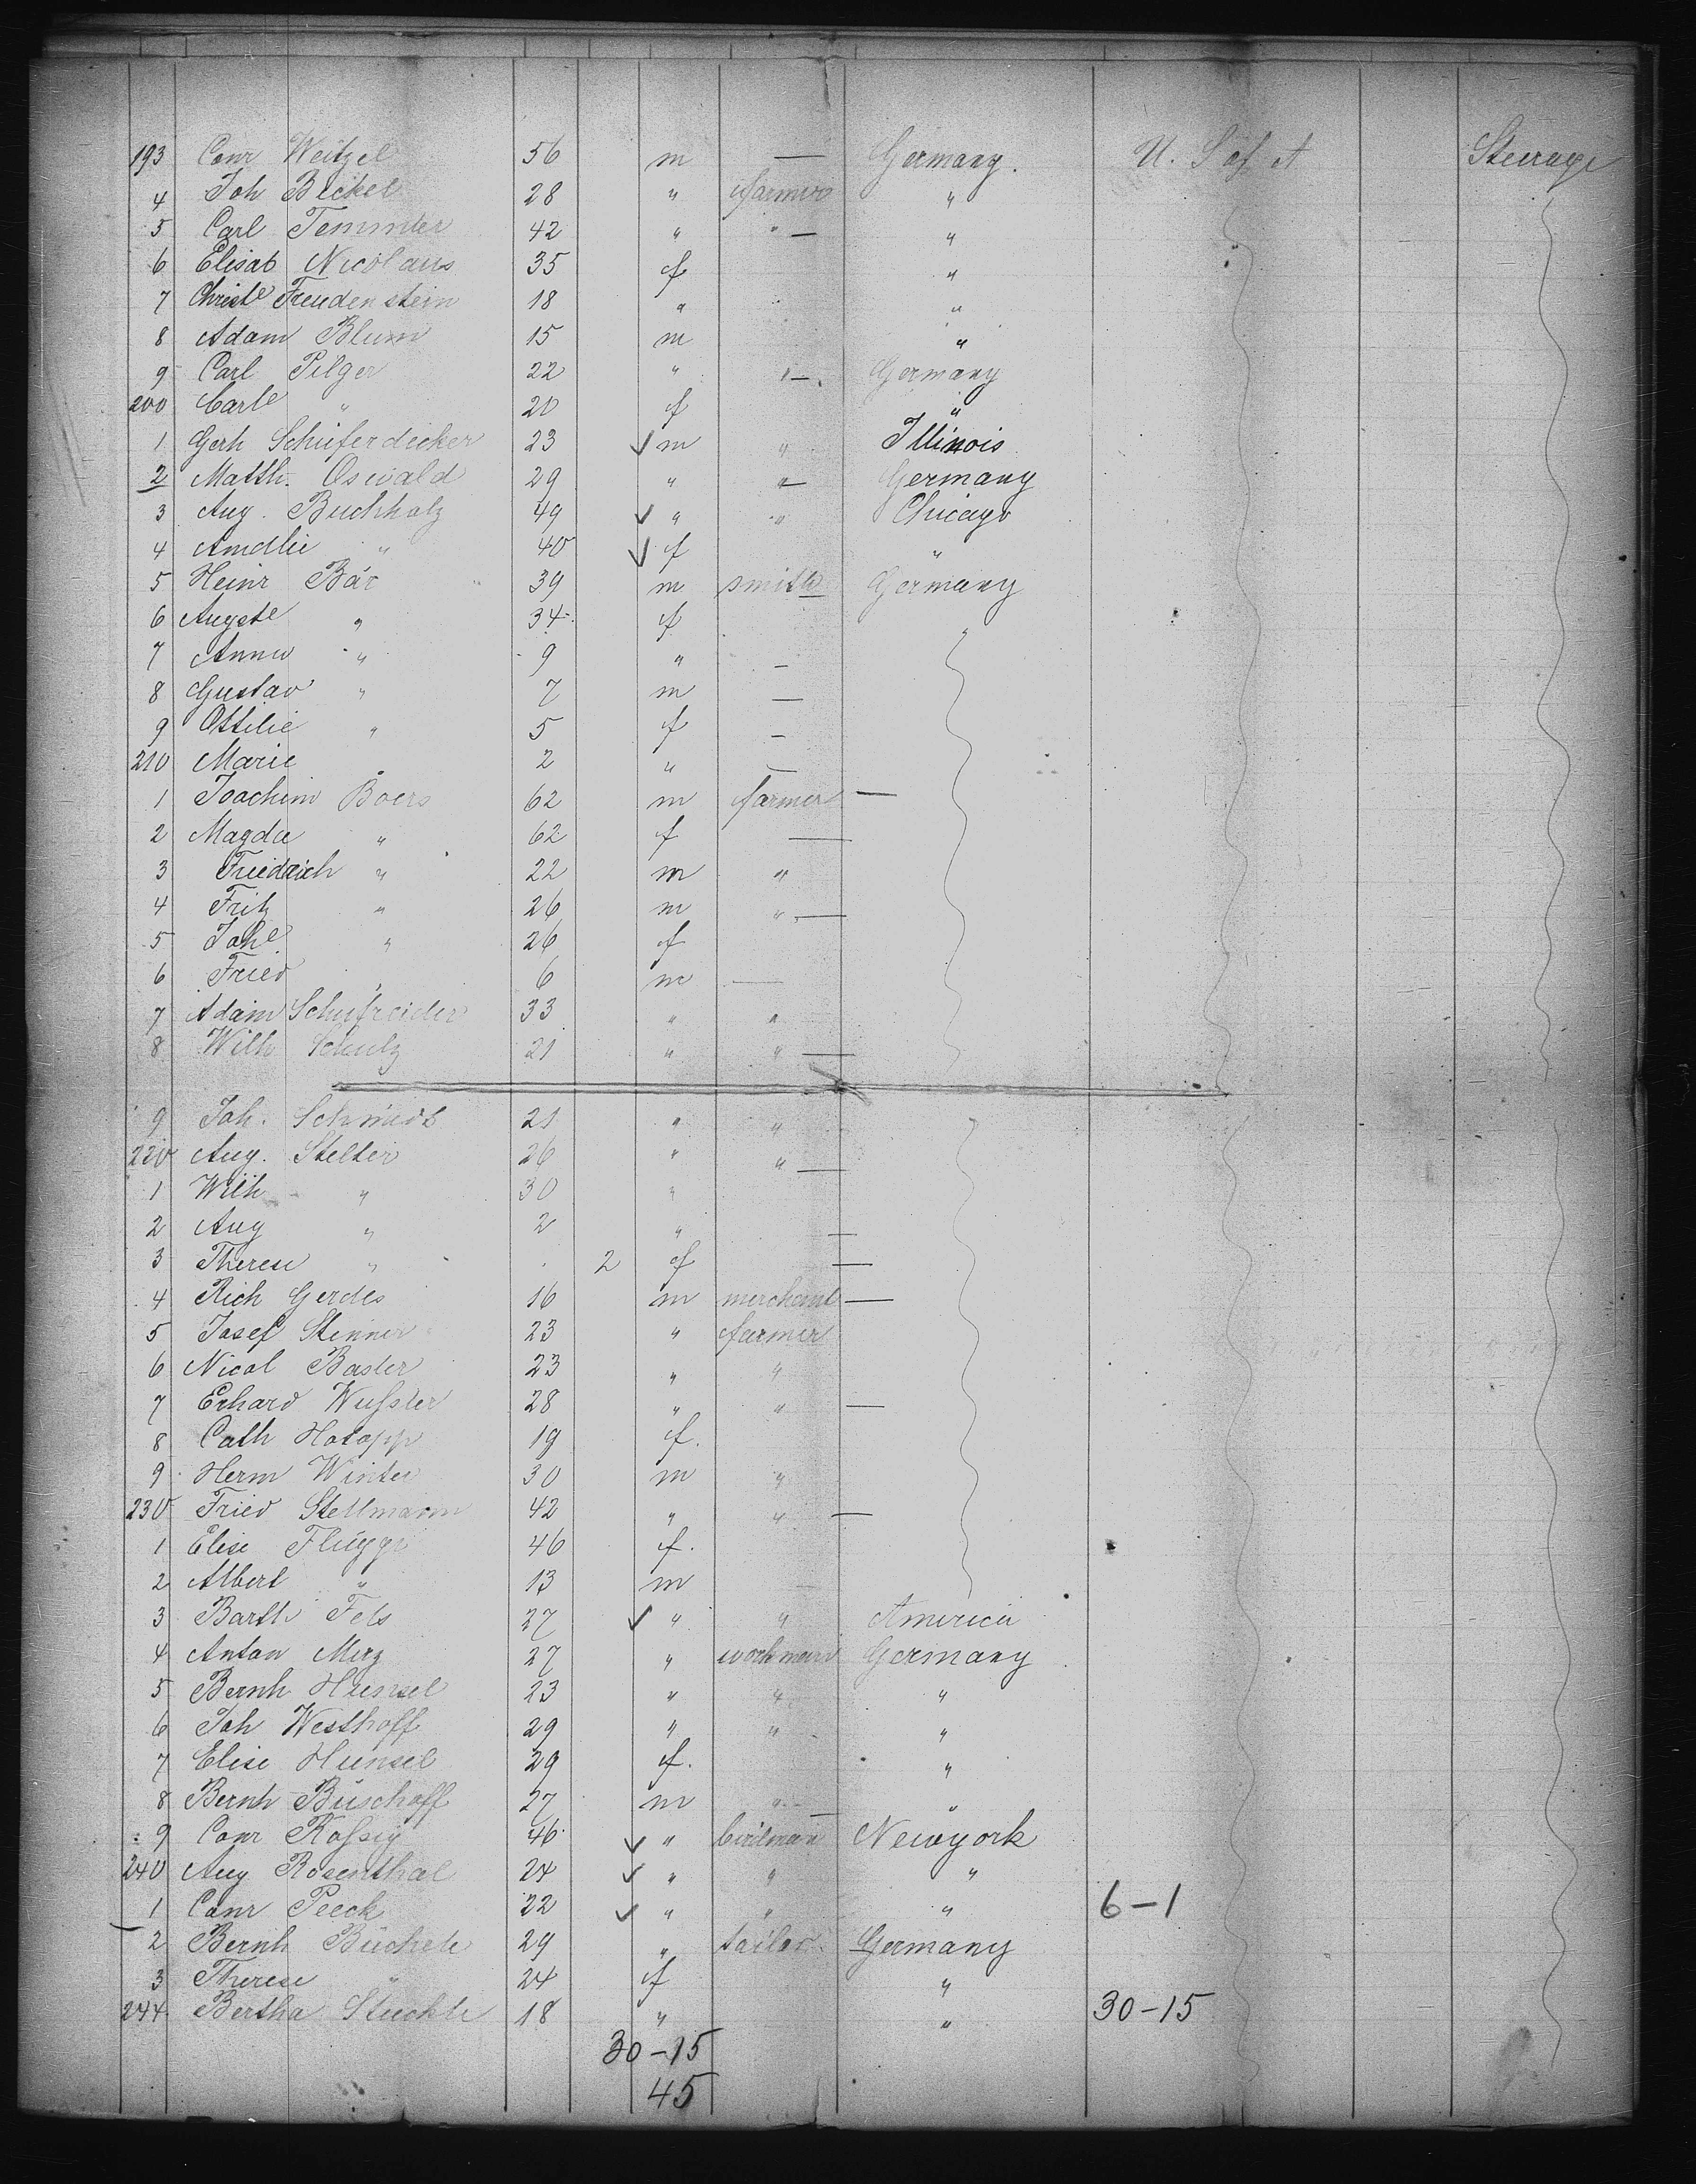 193 Conr Weitzel 56 m — Germany. U. S of A Steerage
4 Joh Bickel 28 " farmer "
5 Carl Temmler 42 " " — "
6 Elisab Nicolaus 35 f "
7 Christe Freudenstein 18 " "
8 Adam Blum 15 m "
9 Carl Pilger 22 " " — Germany
200 Carle " 20 f "
1 Gerh Schüferdecker 23 ✓ m " Illinois
2 Matth. Oswald 29 " " — Germany
3 Aug. Buchholz 49 ✓ " " Chicago
4 Amalie " 40 ✓ f "
5 Heinr Bär 39 m smith Germany
6 Auguste " 34 f "
7 Anna " 9 " —
8 Gustav " 7 m —
9 Ottilie " 5 f —
210 Marie " 2 " —
1 Joachim Boers 62 m farmer —
2 Magda " 62 f —
3 Friedrich " 22 m "
4 Fritz " 26 m " —
5 Johe " 26 f
6 Fried " 6 m —
7 Adam 33 " "
8 Wilh Schulz 21 " " —
9 Joh. Schmidt 21 " "
220 Aug. Stelter 26 " " —
1 Wilh " 30 "
2 Aug " 2 " —
3 Therese " 2 f —
4 Rich Gerdes 16 m merchant —
5 Josef Stinner 23 " farmer
6 Nicol Basler 23 " "
7 Erhard Wussler 28 " " —
8 Cath Hotopp 19 f.
9 Herm Winter 30 m "
230 Fried Stellmann 42 " " —
1 Elise Flügge 46 f.
2 Albert " 13 m —
3 Barth Fels 27 ✓ " " America
4 Anton Merz 27 " workman Germany
5 Bernh Hunsel 23 " " "
6 Joh Westhoff 29 " " "
7 Elise Hunsel 29 f. "
8 Bernh Büschoff 27 m " — "
9 Conr Rossig 46 ✓ " Newyork
240 Aug Rosenthal 24 ✓ " " "
1 Conr Peeck 22 ✓ " " " 6-1
2 Bernh Büchele 29 " tailor Germany
3 Therese " 24 f "
244 Bertha Stuchle 18 " " 30-15
30-15
45